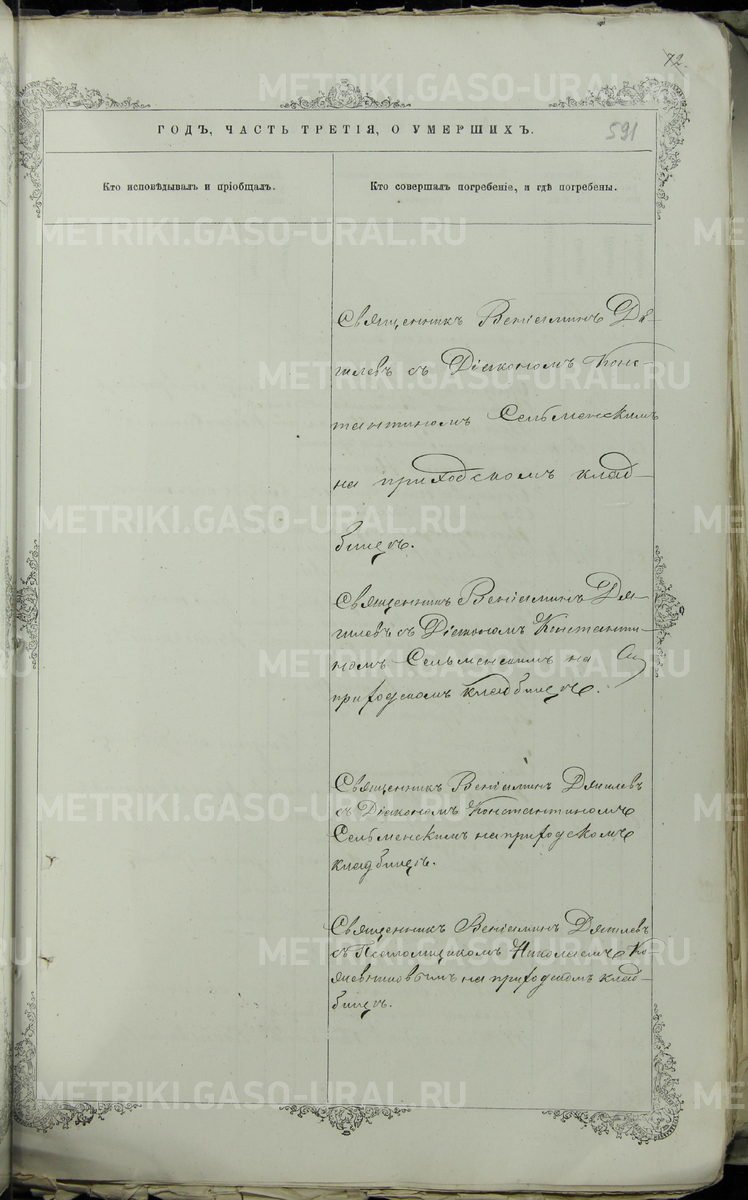 72.
ГОДЪ, ЧАСТЬ ТРЕТІЯ, О УМЕРШИХЪ.
591
Кто исповѣдывалъ и пріобщалъ.
Кто совершалъ погребеніе, и гдѣ погребены.
Священникъ Веніаминъ Дя-
гилевъ съ Діакономъ Конс-
тантиномъ Сельменскимъ
на приходскомъ клад-
бищѣ.
Священникъ Веніаминъ Дя-
гилевъ съ Діакономъ Константи-
номъ Сельменскимъ на
приходскомъ кладбищѣ.
Священникъ Веніаминъ Дягилевъ
съ Діакономъ Константиномъ
Сельменскимъ на приходскомъ
кладбищѣ.
Священникъ Веніаминъ Дягилевъ
съ Псаломщикомъ Николаемъ
на приходскомъ клад-
бищѣ.
METRIKI.GASO-URAL.RU